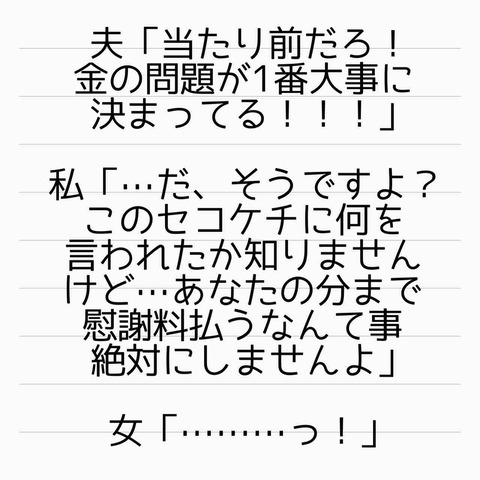 夫「当たり前だろ！
金の問題が1番大事に
決まってる！！！」
私「…だ、そうですよ？
このセコケチに何を
言われたか知りません
けど…あなたの分まで
慰謝料払うなんて事
絶対にしませんよ」
女「………っ！」